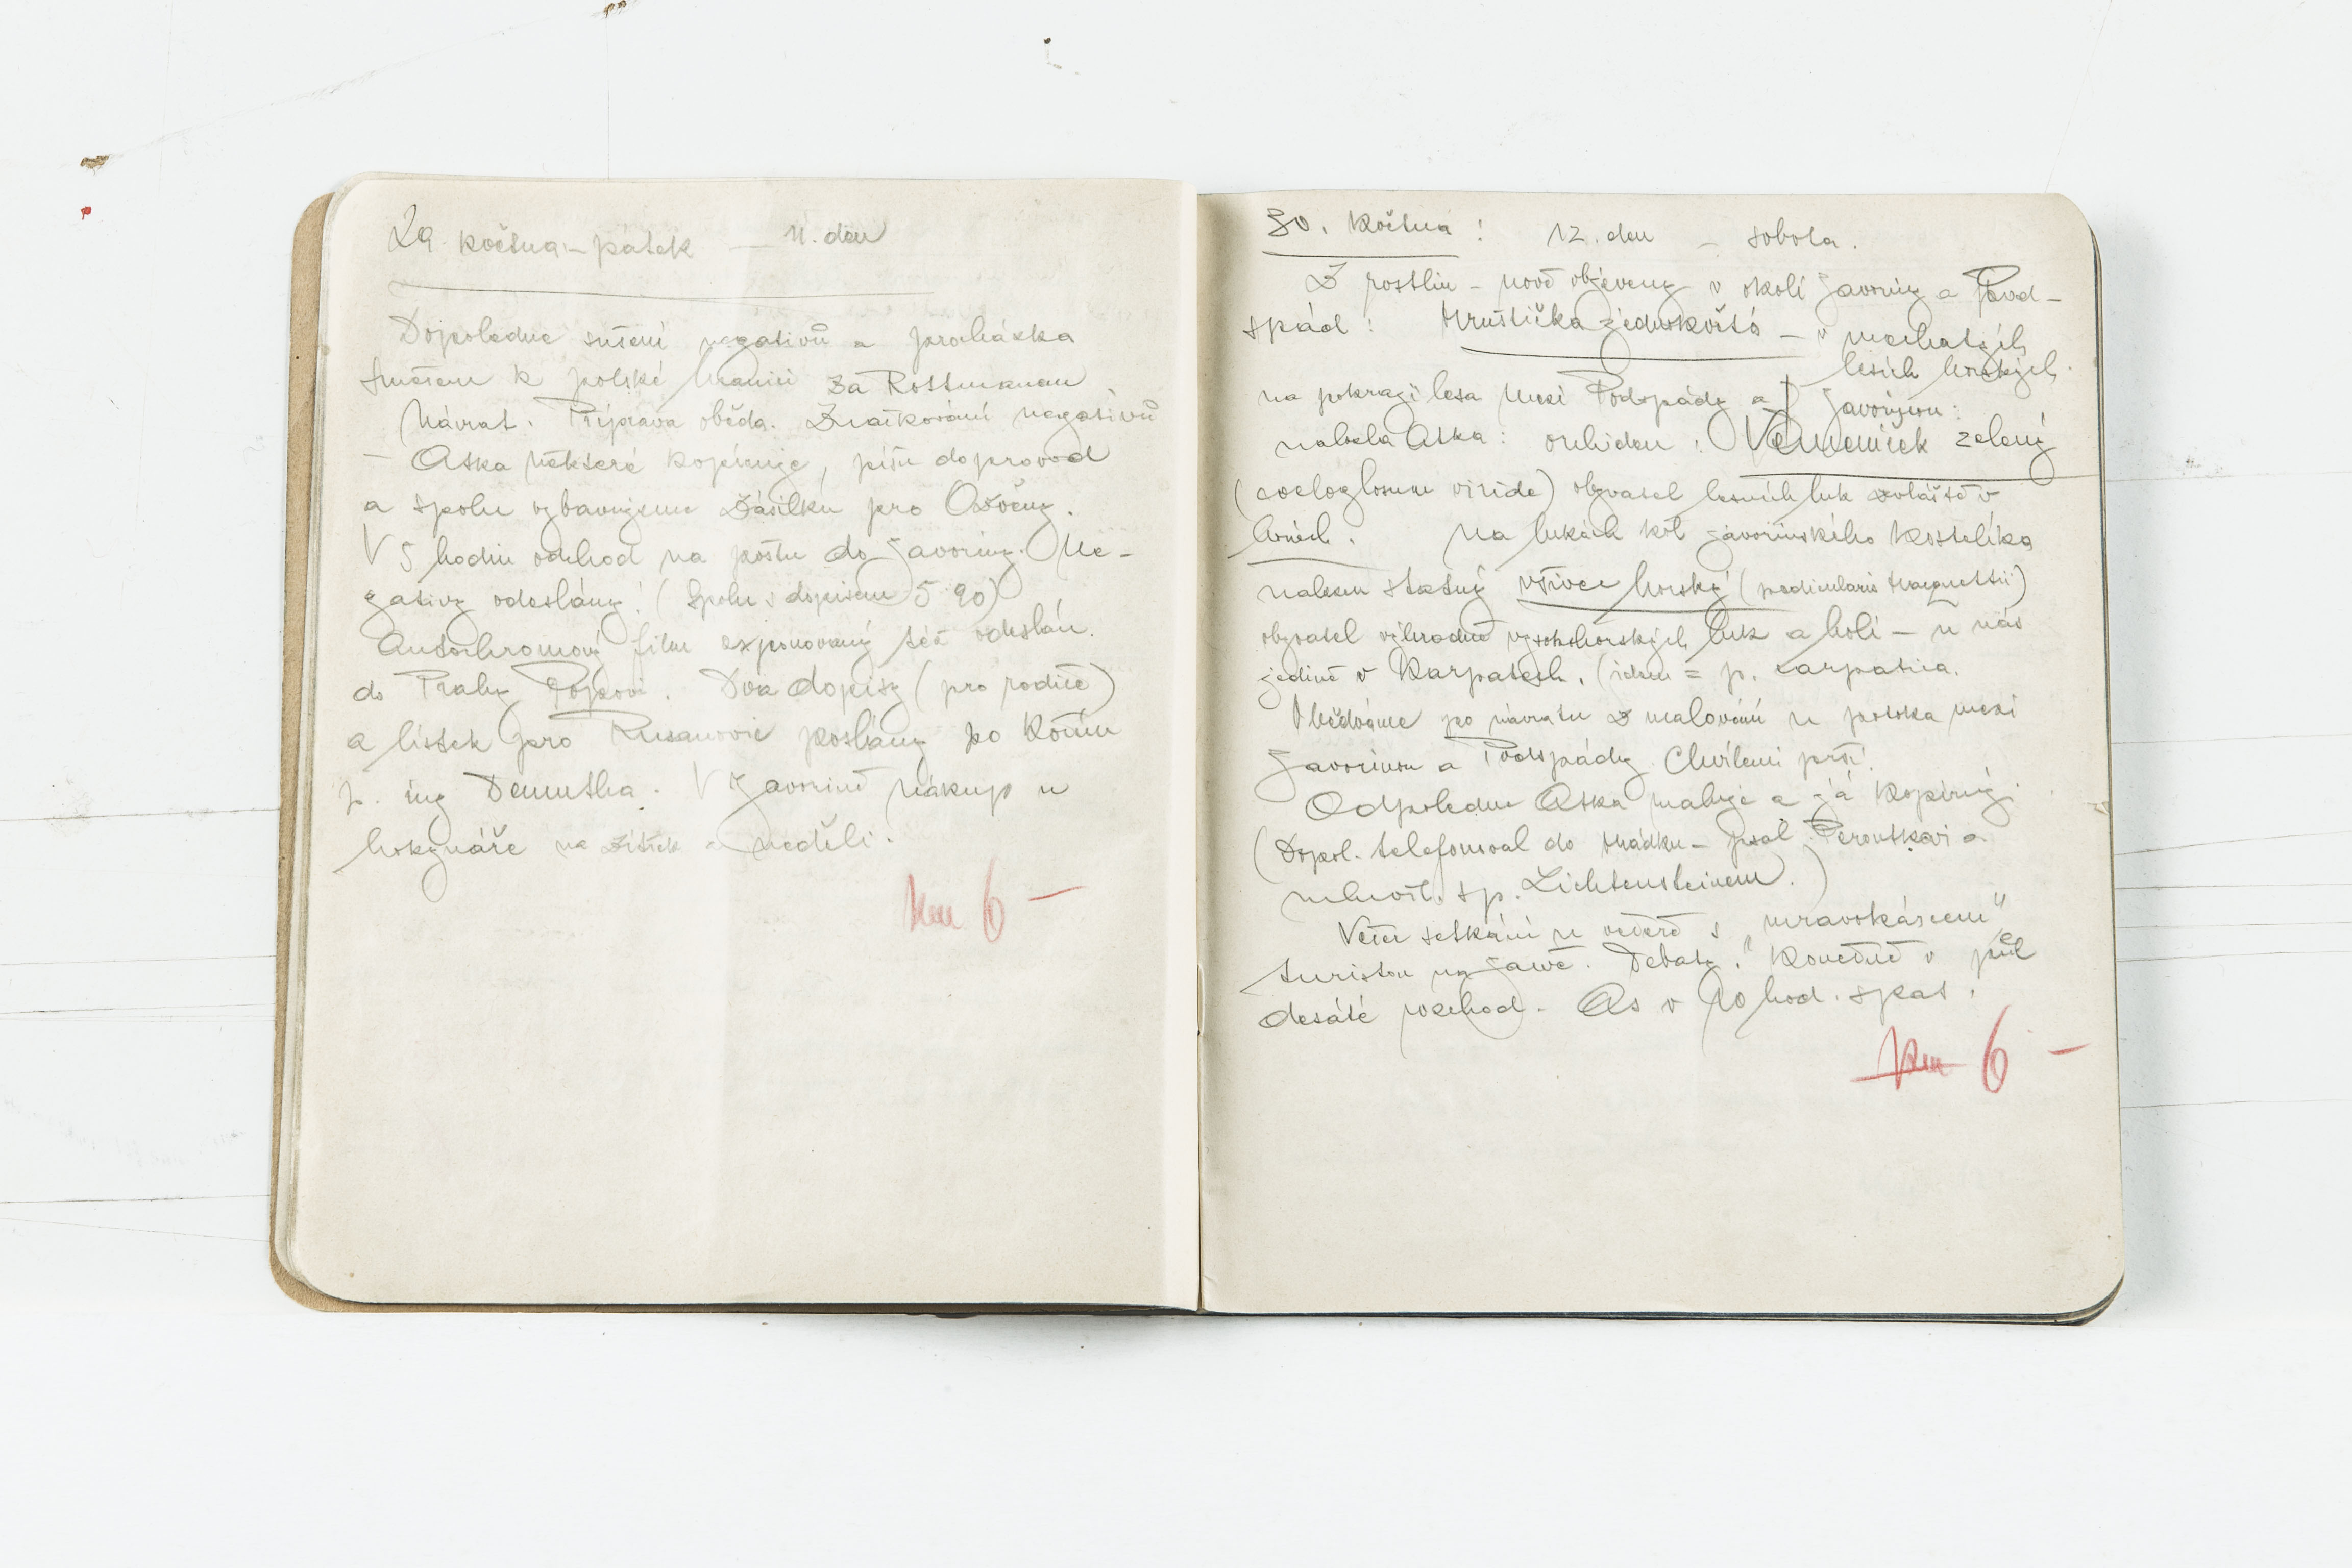 29. května – pátek — 11. den
Dopoledne sušení negativů a procházka
směrem k polské hranici za Rottmanem
Návrat. Příprava oběda. Značkování negativů
– Atka některé kopíruje, píšu doprovod
a spolu vybavujeme zásilku pro
V 5 hodin odchod na poštu do Javoriny. Ne-
gativy odeslány! (Spolu s dopisem 5 90)
Autochromový film exponovaný též odeslán.
do Prahy Popovi. Dva dopisy (pro rodiče)
a lístek pro poslány po
p. ing Demutha. V Javorině nákup u
hokynáře na zítřek a neděli.
Km 6 –
30. května! 12. den – sobota.
Z rostlin – nově objeveny v okolí Javoriny a Pod-
spád: Hruštička jednokvětá – v mechatých
lesích horských.
na pokraji lesa mezi Podspády a Javorinou:
nalezla Atka: orchideu: Vemeníček zelený
(coeloglosum viride) obyvatel lesních luk zvláště v
horách. Na lukách kol javorinského kostelíka
nalezen statný všivec horský (pedicularis Hacquettii)
obyvatel výhradně vysokohorských luk a holí – u nás
jedině v Karpatech. (idem = p. carpatica.
Obědváme po návratu z malování u potoka mezi
Javorinou a Podspády. Chvílemi prší.
Odpoledne Atka maluje a já kopíruji.
(Dopol. telefonoval do Hrádku – psal Peroutkovi a
mluvil. sp. Lichtensteinem.)
Večer setkání u večeře s „mravokárcem"
turistou na Debaty. Konečně v půl
desáté pochod. As v 10 hod. spat.
Km 6 –